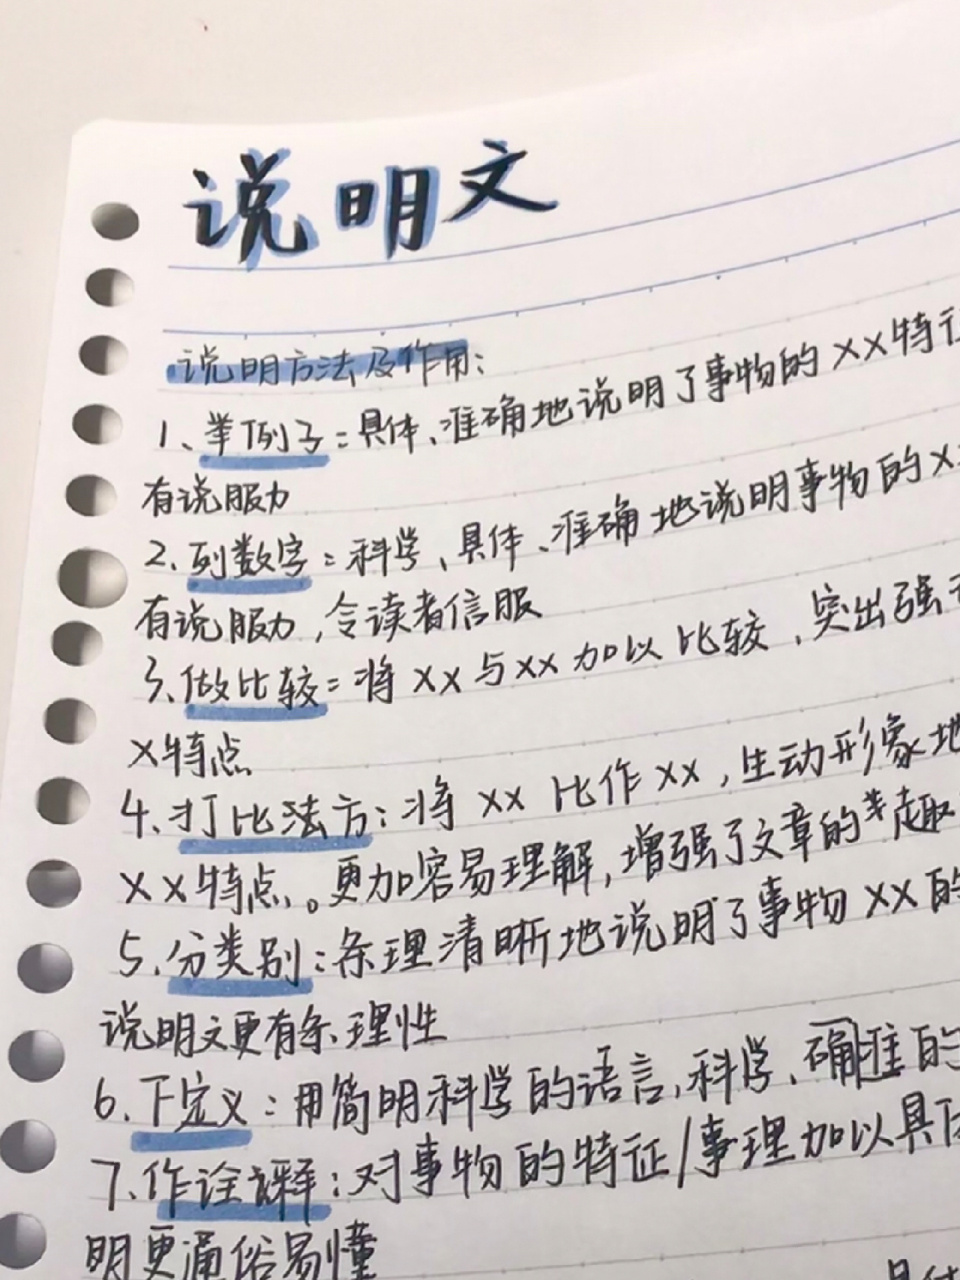 说明文
说明方法及作用:
1、举例子:具体、准确地说明了事物的XX特征
有说服力
2、列数字:科学、具体、准确地说明事物的X
有说服力,令读者信服
3、做比较:将XX与XX加以比较,突出强
X特点
4、打比法方:将XX比作XX,生动形象地
XX特点。更加容易理解,增强了文章的趣
5、分类别:条理清晰地说明了事物XX的
说明文更有条理性
6、下定义:用简明科学的语言,科学、确准的
7、作诠释:对事物的特征/事理加以具
明更通俗易懂
具体